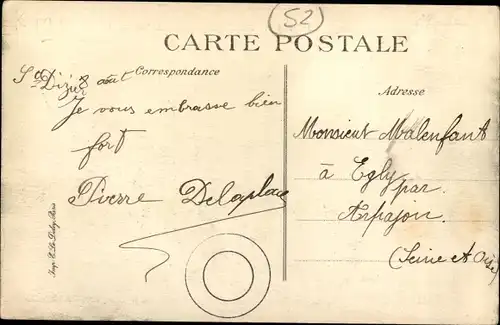 52
CARTE POSTALE
Correspondance
St Dizier 8 août
Je vous embrasse bien
fort
Pierre Delaplace
Adresse
Monsieur Malenfant
à Egly
par
Arpajon
(Seine et Oise)